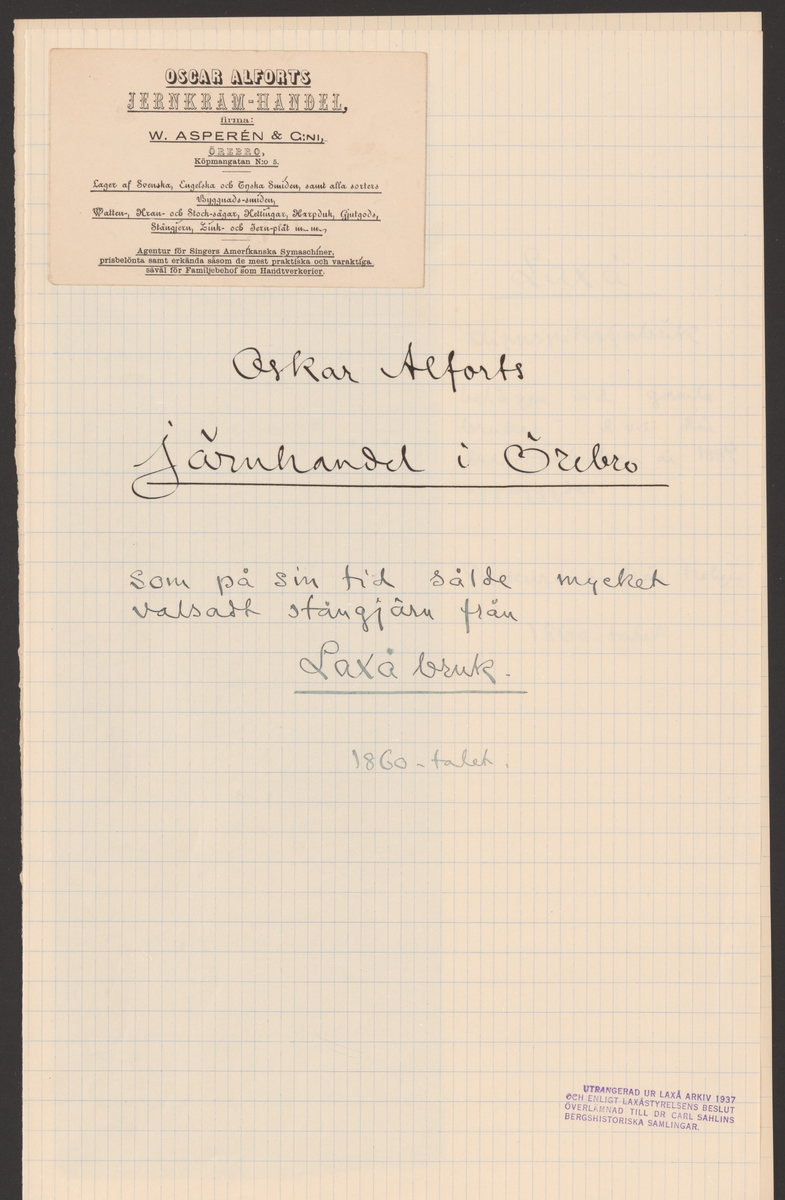 OSCAR ALFORTS
JERNKRAM-HANDEL,
firma:
W. ASPERÉN & C:NI,
ÖREBRO,
Köpmangatan N:o 5.
Lager af Svenska, Engelska och Tyska Smiden, samt alla sorters
Byggnads-smiden,
Watten-, Kran- och Stock-sågar, Kettingar, Harpduk, Gjutgods,
Stångjern, Zink- och Jern-plåt m. m.,
Agentur för Singers Amerikanska Symaschiner,
prisbelönta samt erkända såsom de mest praktiska och varaktiga
såväl för Familjebehof som Handtverkerier.
Oskar Alforts
järnhandel i Örebro
som på sin tid sålde mycket
valsadt stångjärn från
Laxå bruk.
1860-talet.
UTRANGERAD UR LAXÅ ARKIV 1937
OCH ENLIGT LAXÅSTYRELSENS BESLUT
ÖVERLÄMNAD TILL DR CARL SAHLINS
BERGSHISTORISKA SAMLINGAR.